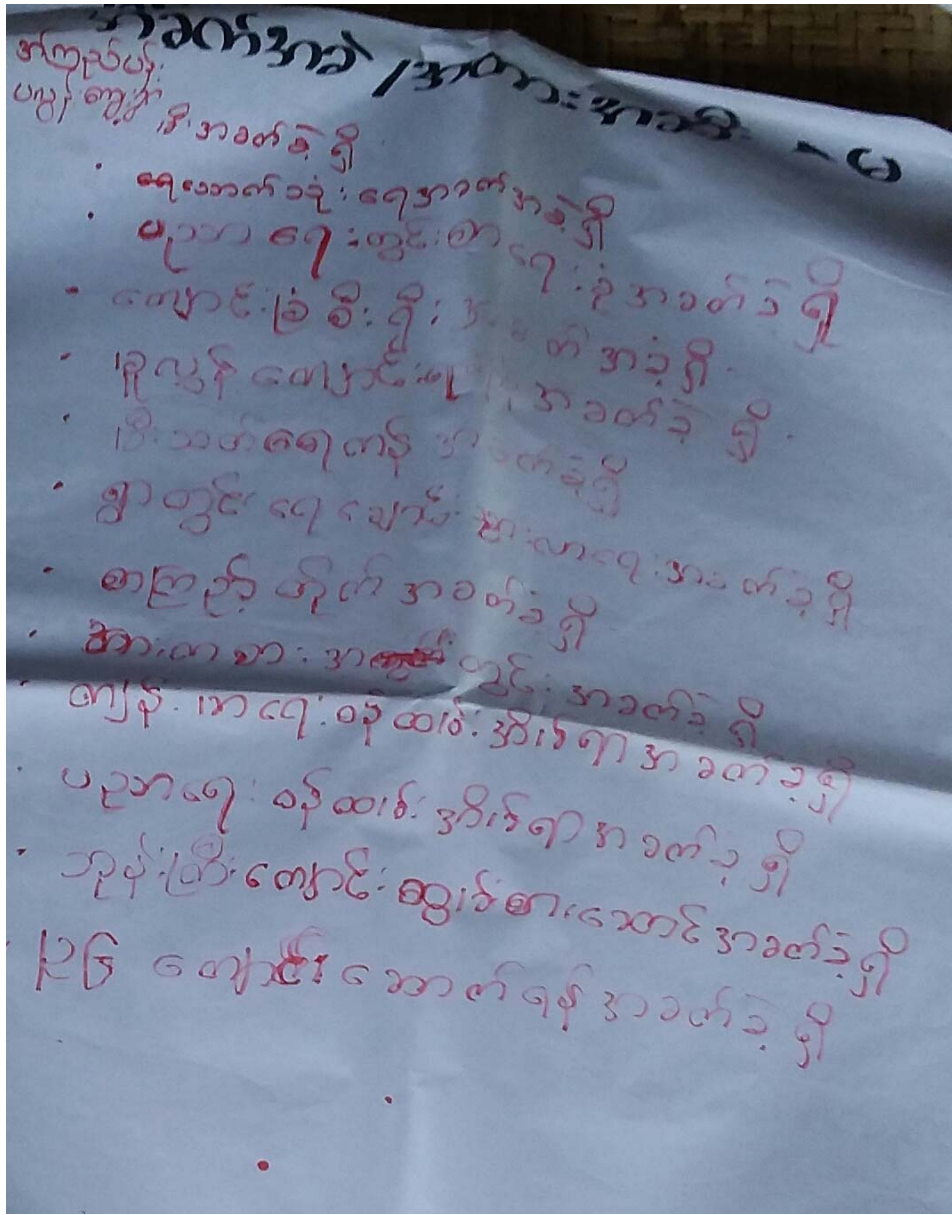 အခက်အခဲ /အတားအဆီး - ၁
အင်ကြည်ပင်
ပလွန် ကျေးရွာ
မီးအခက်ခဲရှိ
ရေသောက်သုံးရေအခက်အခဲရှိ
ပညာရေးတွင်းစာရေးခုံအခက်ခဲရှိ
ကျောင်းခြံစည်းရိုးအခက်အခဲရှိ
မူလွန်ကျောင်း အခက်ခဲရှိ
မီးသတ်ရေကန် အခက်ခဲရှိ
ရွာတွင်း ရေ သွားလာရေးအခက်ခဲရှိ
စာကြည့်တိုက်အခက်ခဲရှိ
အားကစား တွင်းအခက်ခဲရှိ
ကျန်းမာရေးဝန်ထမ်းအိမ်ရာအခက်ခဲရှိ
ပညာရေးဝန်ထမ်းအိမ်ရာအခက်ခဲရှိ
ဘုန်းကြီးကျောင်းဆွမ်းစားဆောင်အခက်ခဲရှိ
ကျောင်းဆောက်ရန်အခက်ခဲရှိ